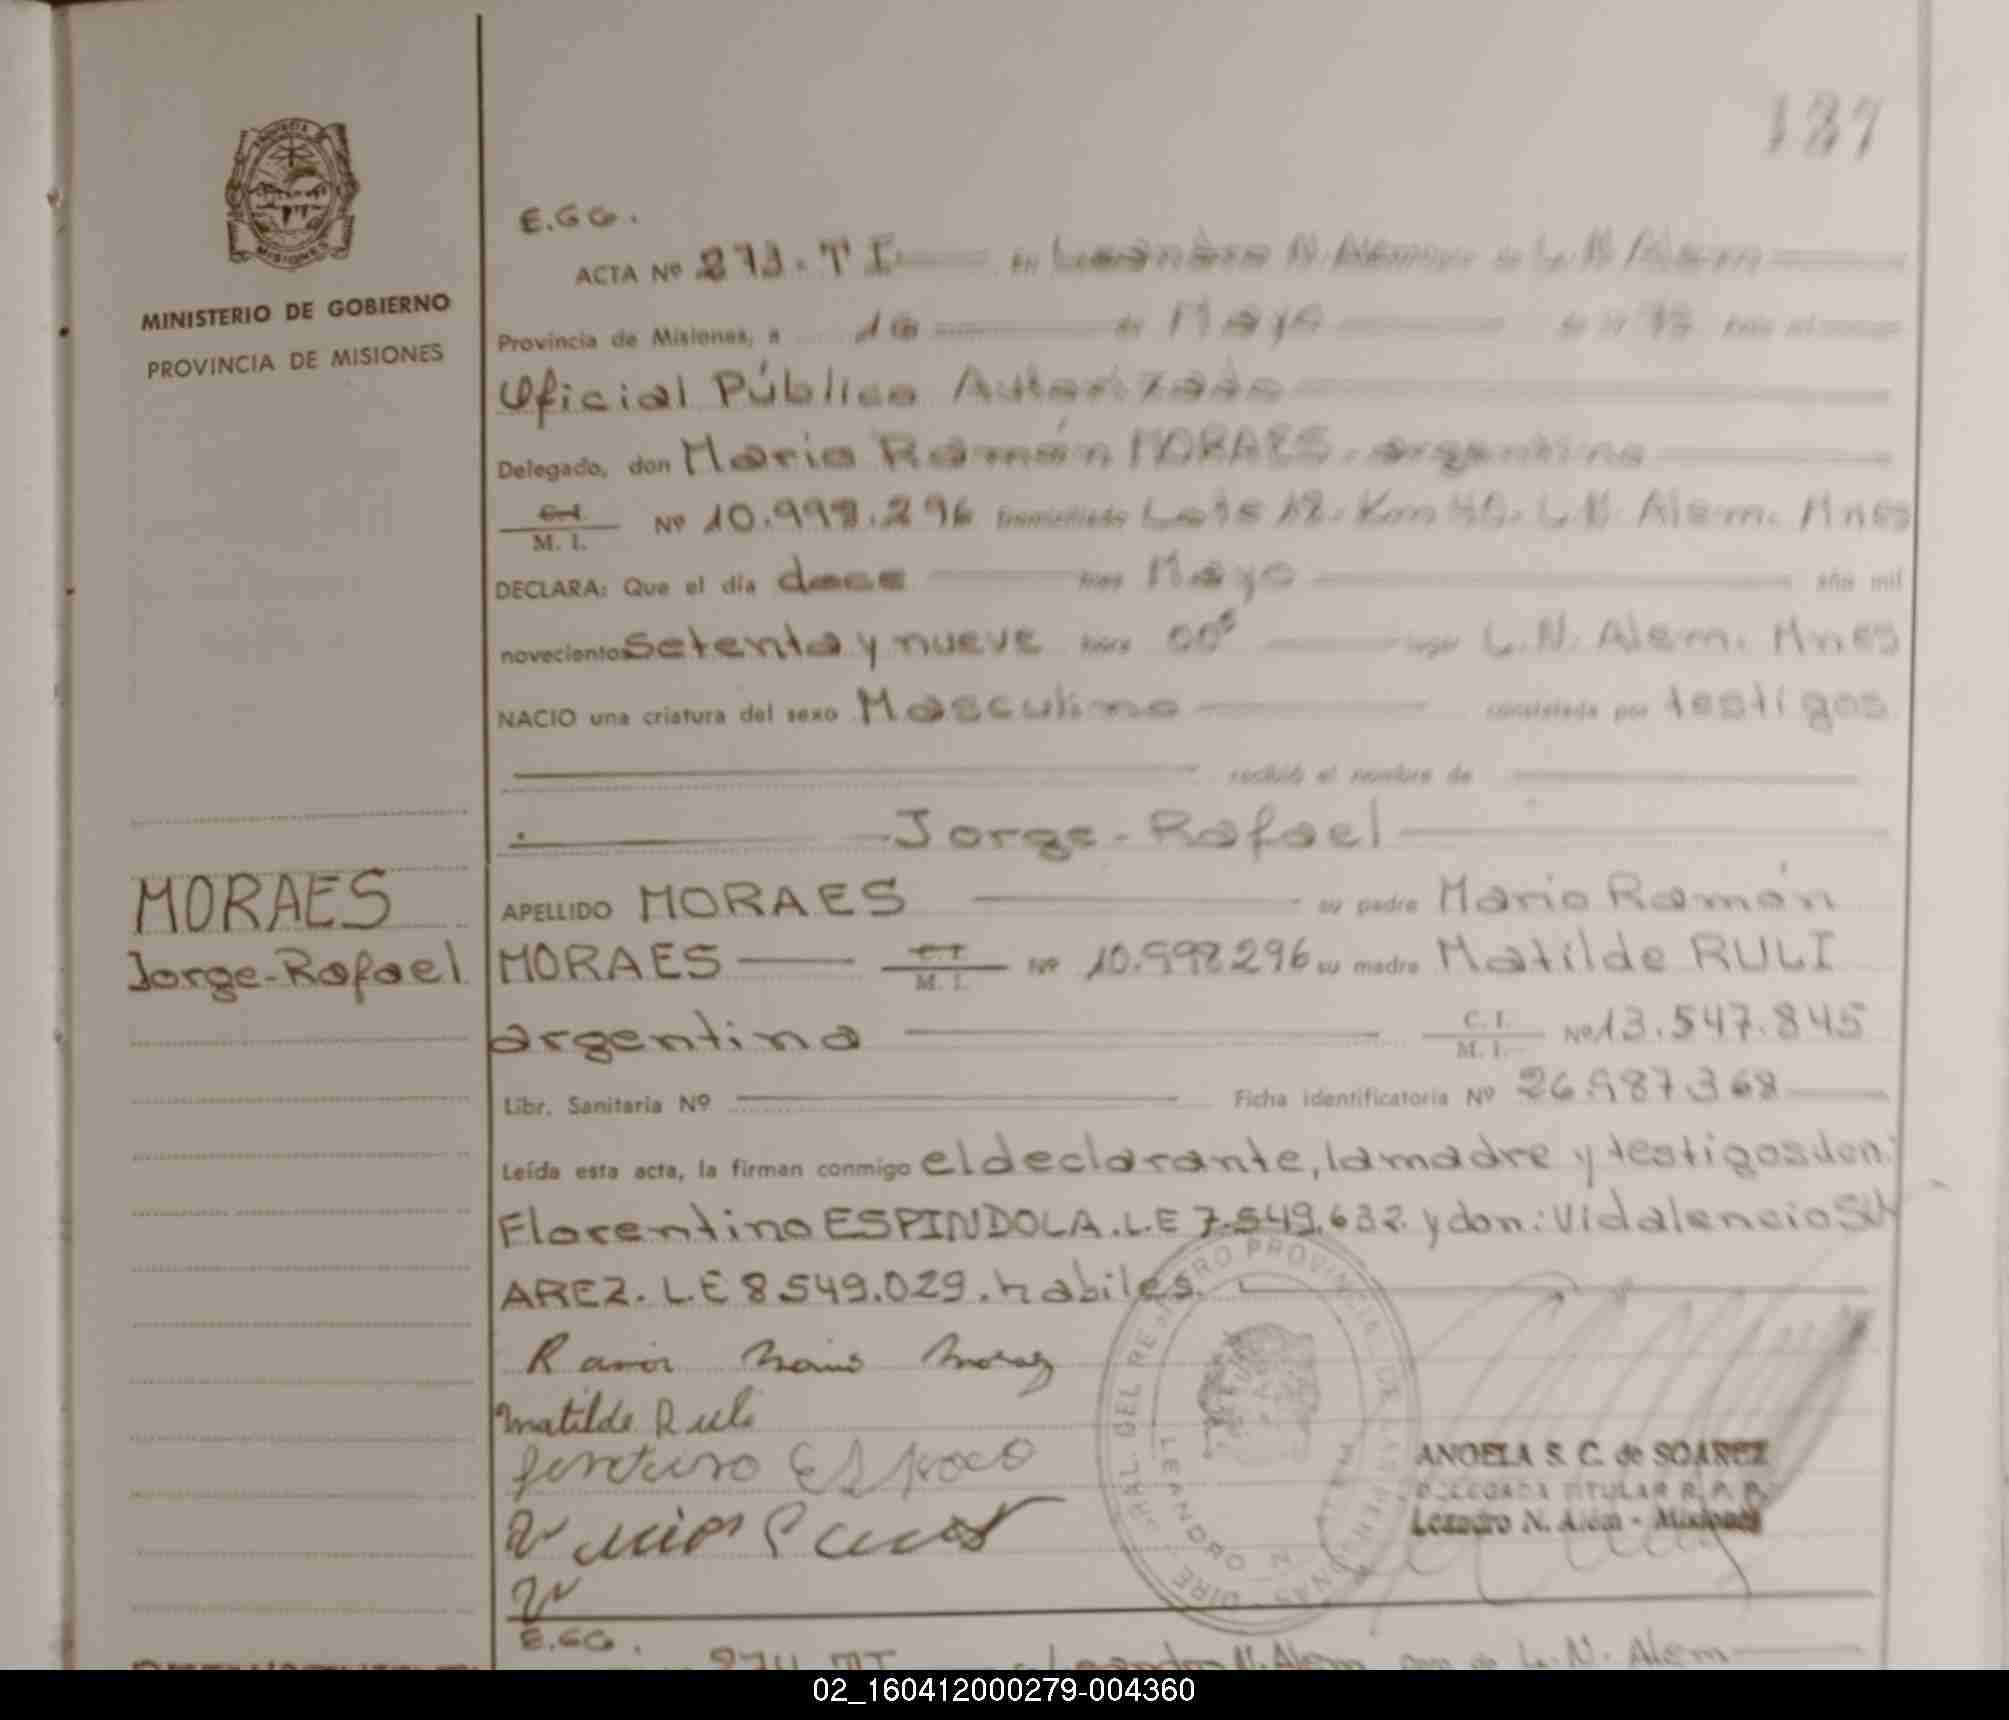 137
E.GG.
ACTA Nº 273. T I en Leandro N. Alem L. N. Alem
Provincia de Misiones, a de Mayo 79
Oficial Público Autorizado
Delegado, don Mario Ramón MORAES. argentino
C.I. M. I. Nº 10.998.296 domiciliado Lote 12. Km 40. L.N. Alem. Mnes
DECLARA: Que el día doce mes Mayo año mil
novecientos setenta y nueve hora 00⁵ lugar L.N. Alem. Mnes
NACIO una criatura del sexo Masculino constatada por testigos
recibió el nombre de
Jorge-Rafael
APELLIDO MORAES su padre Mario Ramón
MORAES C.I. M. I. Nº 10.998296 su madre Matilde RULI
argentina C. I. M. I. Nº 13.547.845
Libr. Sanitaria Nº Ficha identificatoria Nº 26.987.368
Leída esta acta, la firman conmigo el declarante, la madre y testigos don:
Florentino ESPINDOLA. L.E 7.549.632 y don: Vidalencio SU
AREZ. L.E 8.549.029. habiles.
Matilde Ruli
ANGELA S. C. de SOAREZ
DELEGADA TITULAR R. P. P.
Leandro N. Alem - Misiones
E.GG.
274 Leandro N. Alem L. N. Alem
PROVINCIA
MISIONES
MINISTERIO DE GOBIERNO
PROVINCIA DE MISIONES
MORAES
Jorge-Rafael
02_160412000279-004360